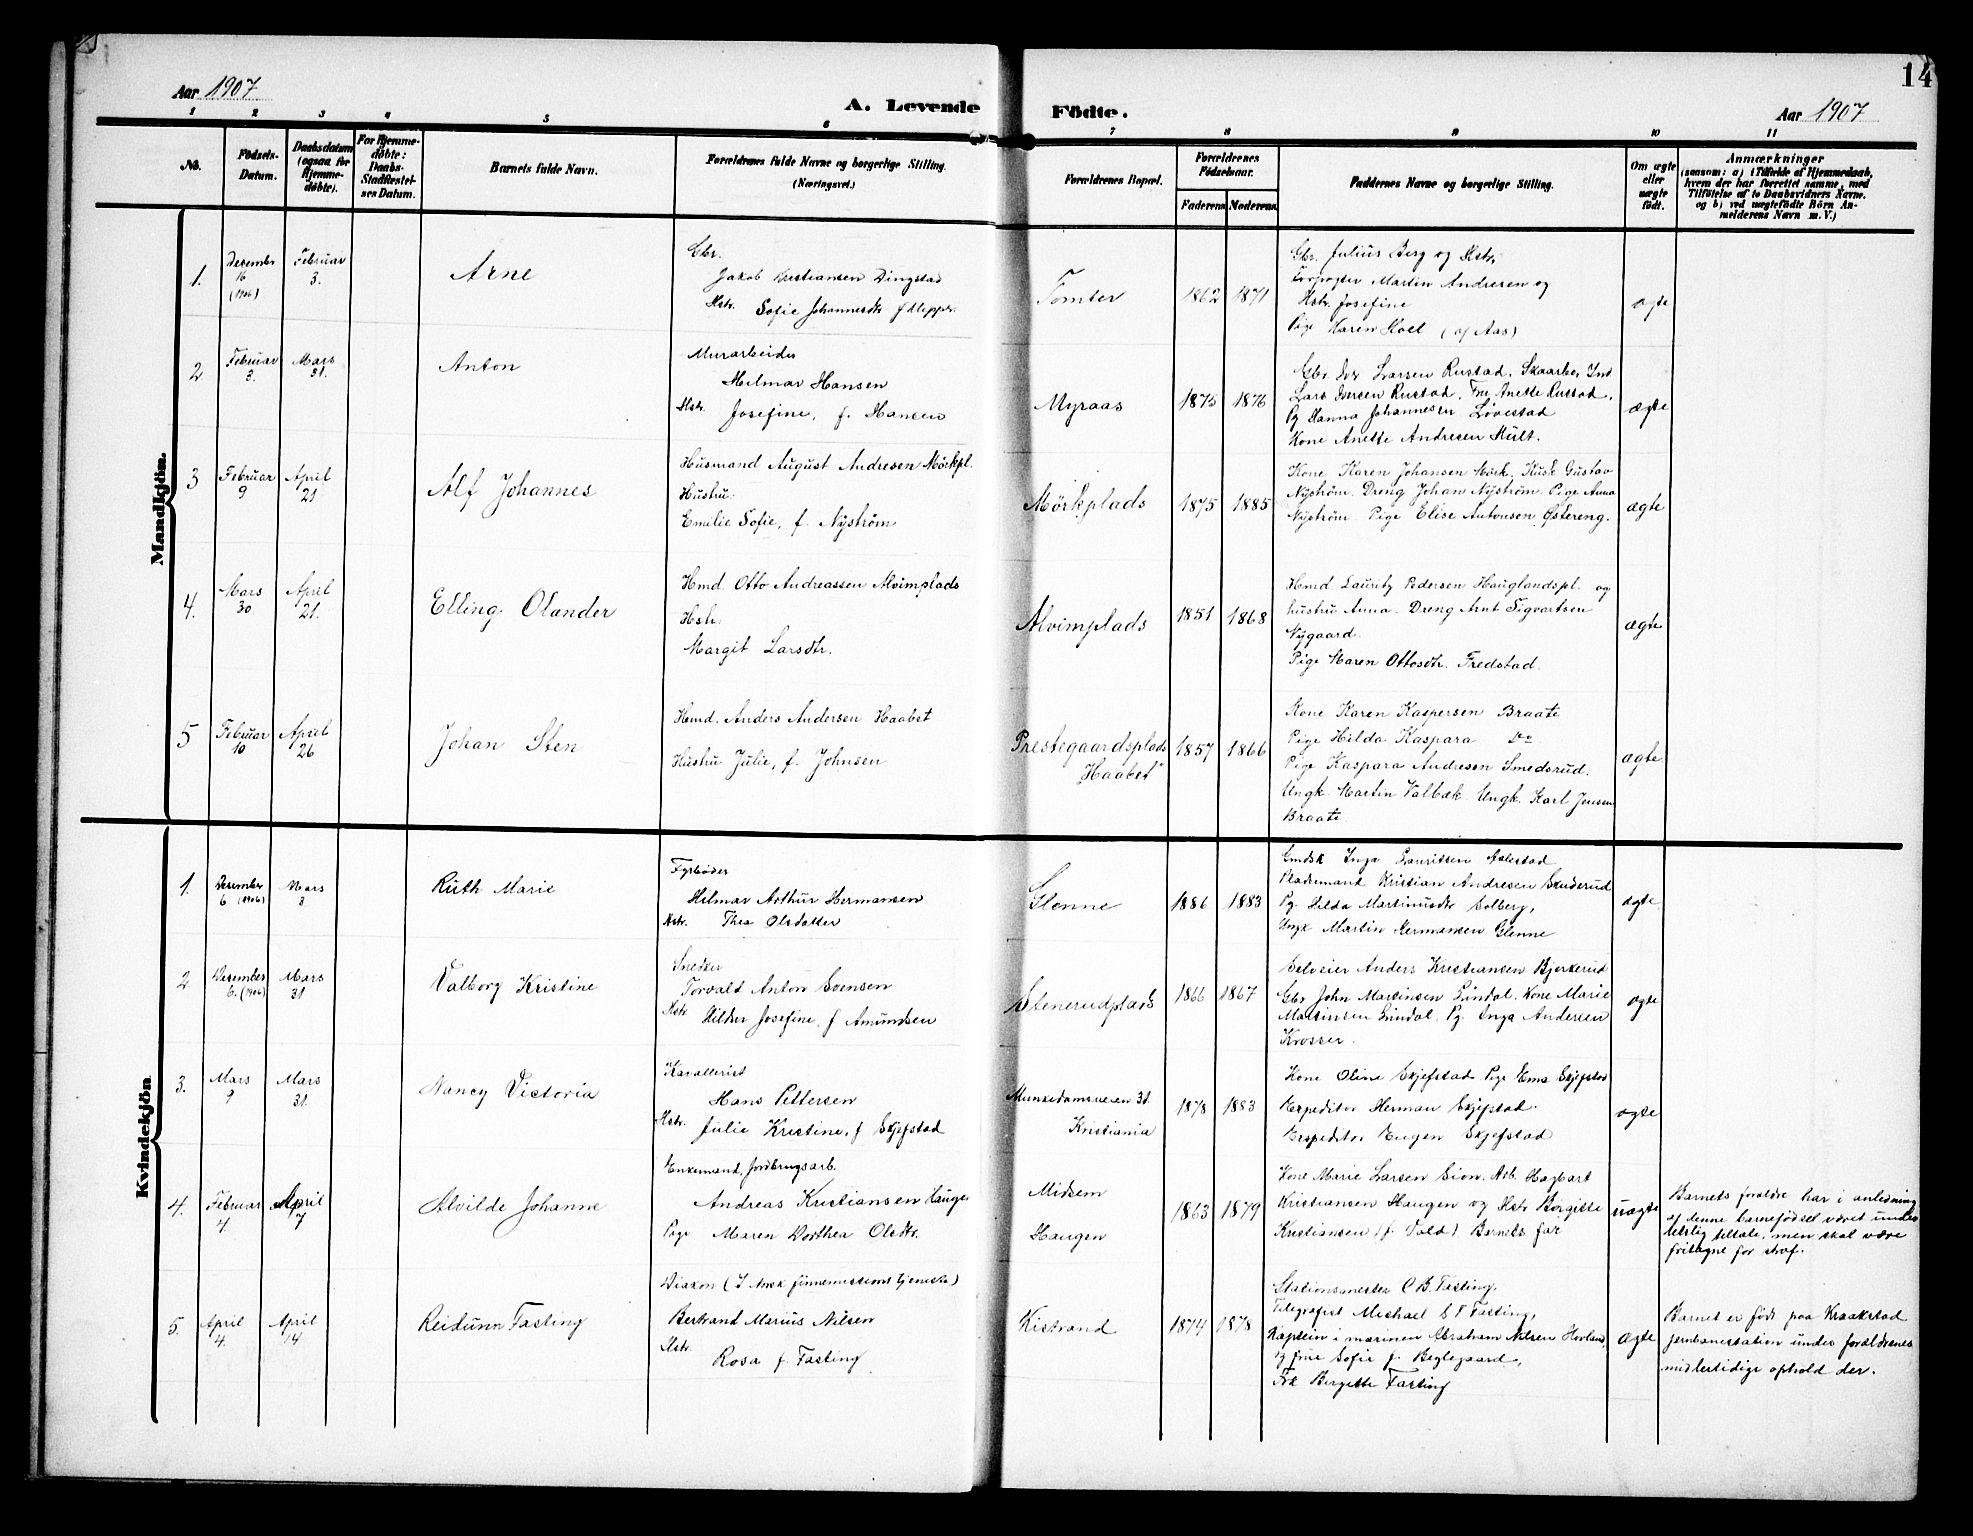 14
Aar 1907
A. Levende Födte.
Aar 1907
1 2 3 4 5 6 7 8 9 10 11
No.
Födsels-Datum.
Daabsdatum (ogsaa for Hjemme-døbte).
For Hjemme-døbte: Daabs-Stadfæstel-ses Datum.
Barnets fulde Navn.
Forældrenes fulde Navne og borgerlige Stilling. (Næringsvei.)
Forældrenes Bopæl.
Forældrenes Födselsaar.
Faderens Moderens
Faddernes Navne og borgerlige Stilling.
Om ægte eller uægte födt.
Anmærkninger
(saasom: a) i Tilfælde af Hjemmedaab, hvem der har forrettet samme, med Tilföielse af to Daabsvidners Navne. og b) ved uægtefödte Börn An-melderens Navn m. V.)
Mandkjön.
1. Desember 16 (1906)
Februar 3.
Arne
Gbr.
Jakob Kristiansen Dingstad
Hstr. Sofie Johannesdtr
Tomter
1862 1871
Gbr. Julius Berg og Hstr.
Martin Andresen og
Hstr. Josefine
Pige Karen Hoel (af Aas)
ægte
2 Februar 3.
Mars 31.
Anton
Murarbeider
Hilmar Hansen
Hstr. Josefine, f. Hansen
Myraas
1875 1876
Gbr Iver Larsen Rustad. Skaarbo, Ind
Lars Iversen Rustad. Fru Anette Rustad.
Pg Hanna Johannesen Løvestad
Kone Anette Andresen Hült.
ægte
3 Februar 9
April 21
Alf Johannes
Husmand August Andresen Mörkpl.
Hustru:
Emilie Sofie, f. Nyström
Mörkplads
1875 1885
Kone Karen Johansen Mörk. Husk Gustav
Nyström. Dreng Johan Nyström. Pige Anna
Nyström Pige Elise Antonsen Østereng.
ægte
4. Mars 30.
April 21.
Elling Olander
Hmd. Otto Andreassen Alvimplads
Hstr.
Margit Larsdtr.
Alvimplads
1851 1868
Hmd Lauritz Pedersen Hauglandspl. og
hustru Anna. Dreng Arnt Sigvartsen
Nygaard.
Pige Maren Ottosdtr. Fredstad.
ægte
5 Februar 10
April 26
Johan Sten
Hmd. Anders Andersen Haabet
Hustru Julie, f. Johnsen
Prestegaardsplads
Haabet"
1857 1866
Kone Karen Kaspersen Braate
Pige Hilda Kaspara Do
Pige Kaspara Andresen Smedsrud.
Ungk. Martin Valbæk Ungk. Karl Jensen
Braate.
ægte
Kvindekjön
1. Desember 6 (1906)
Mars 3
Ruth Marie
Fyrbøder
Hilmar Arthur Hermansen
Hstr. Thea Olsdatter
Glenne
1886 1883
Gmdsk Inga Lauritsen
Kristian Andresen Skuderud
Pg. Hilda Martinusdtr Solberg,
Ungk Martin Hermansen Glenne
ægte
2 Desember 6. (1906)
Mars 31
Valborg Kristine
Snedker
Torvald Anton Svensen
Hstr Hilda Josefine, f Amundsen
Stenerudplads
1866 1867
Selveier Anders Kristiansen Bjerkerud
Gbr John Martinsen Lindal. Kone Marie
Martinsen Lindal. Pg. Inga Andersen
Krosser.
ægte
3. Mars 9
Mars 31.
Nancy Victoria
Kavallerist
Hans Pettersen
Hstr. Julie Kristine, f Skjefstad
Munkedamsveien 31.
Kristiania
1878 1883
Kone Oline Skjefstad Pige Ema Skjefstad
Expeditör Herman Skjefstad.
Expeditör Eugen Skjefstad
ægte
4. Februar 4
April 7
Alvilde Johanne
Enkemand, jordbrugsarb.
Andreas Kristiansen Haugen
Pige Maren Dorthea Olsdtr.
Midsem
Haugen
1863 1879
Kone Marie Larsen Sion. Arb. Hagbart
Kristiansen Haugen og Hstr Borgitte
Kristiansen (f. Vold) Barnets far
uægte
Barnets forældre har i anledning
af denne barnefødsel været under
retslig tiltale, men skal være
fritagne for straf.
5. April 4.
April 14
Reidunn Fasting
Diakon (I Norsk finnemissions tjeneste)
Bertrand Marius Nilsen
Hstr.
Rosa f. Fasting
Kistrand
1874 1878
Stationsmester C B. Fasting.
Telegrafist Michael S F Fasting,
Kaptein i marinen Abraham Nilsen Hovland,
og frue Sofie f. Beglegaard,
Frk Bergette Fasting
ægte
Barnet er født paa Kraakstad
jernbanestation under forældrenes
midlertidige ophold der.